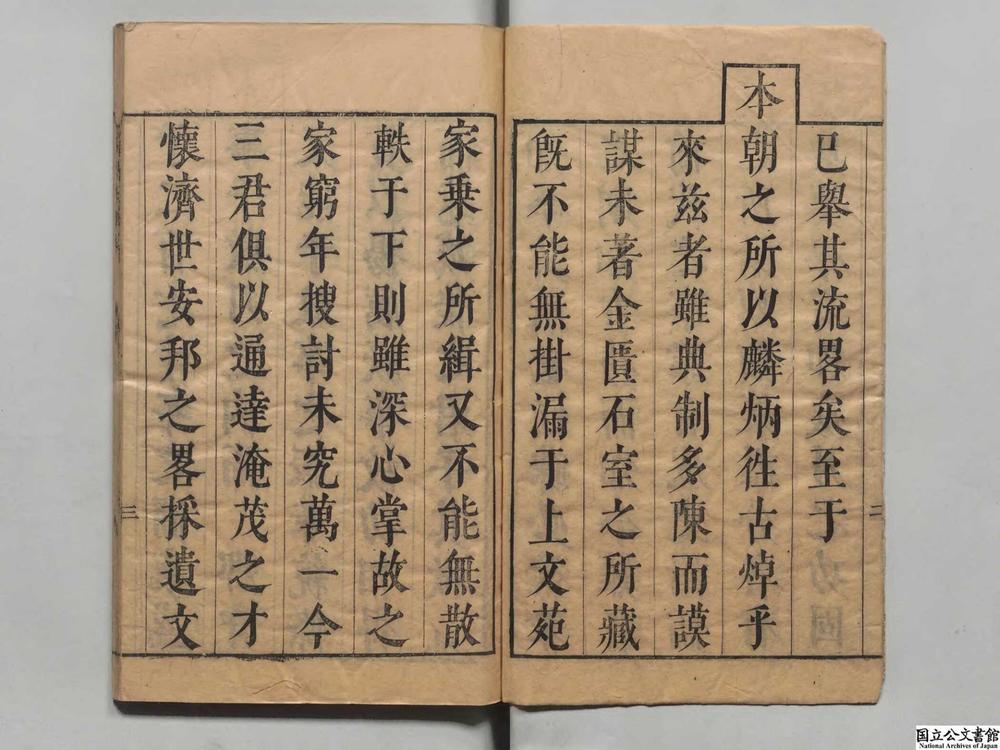 已舉其流畧矣至于
本朝之所以麟炳徃古焯乎
來茲者雖典制多陳而謨
謀未著金匱石室之所藏
旣不能無掛漏于上文苑
二
家乗之所緝又不能無散
軼于下則雖深心掌故之
家窮年搜討未究萬一今
三君俱以通達淹茂之才
懷濟世安邦之畧採遺文
三
国立公文書館
National Archives of Japan